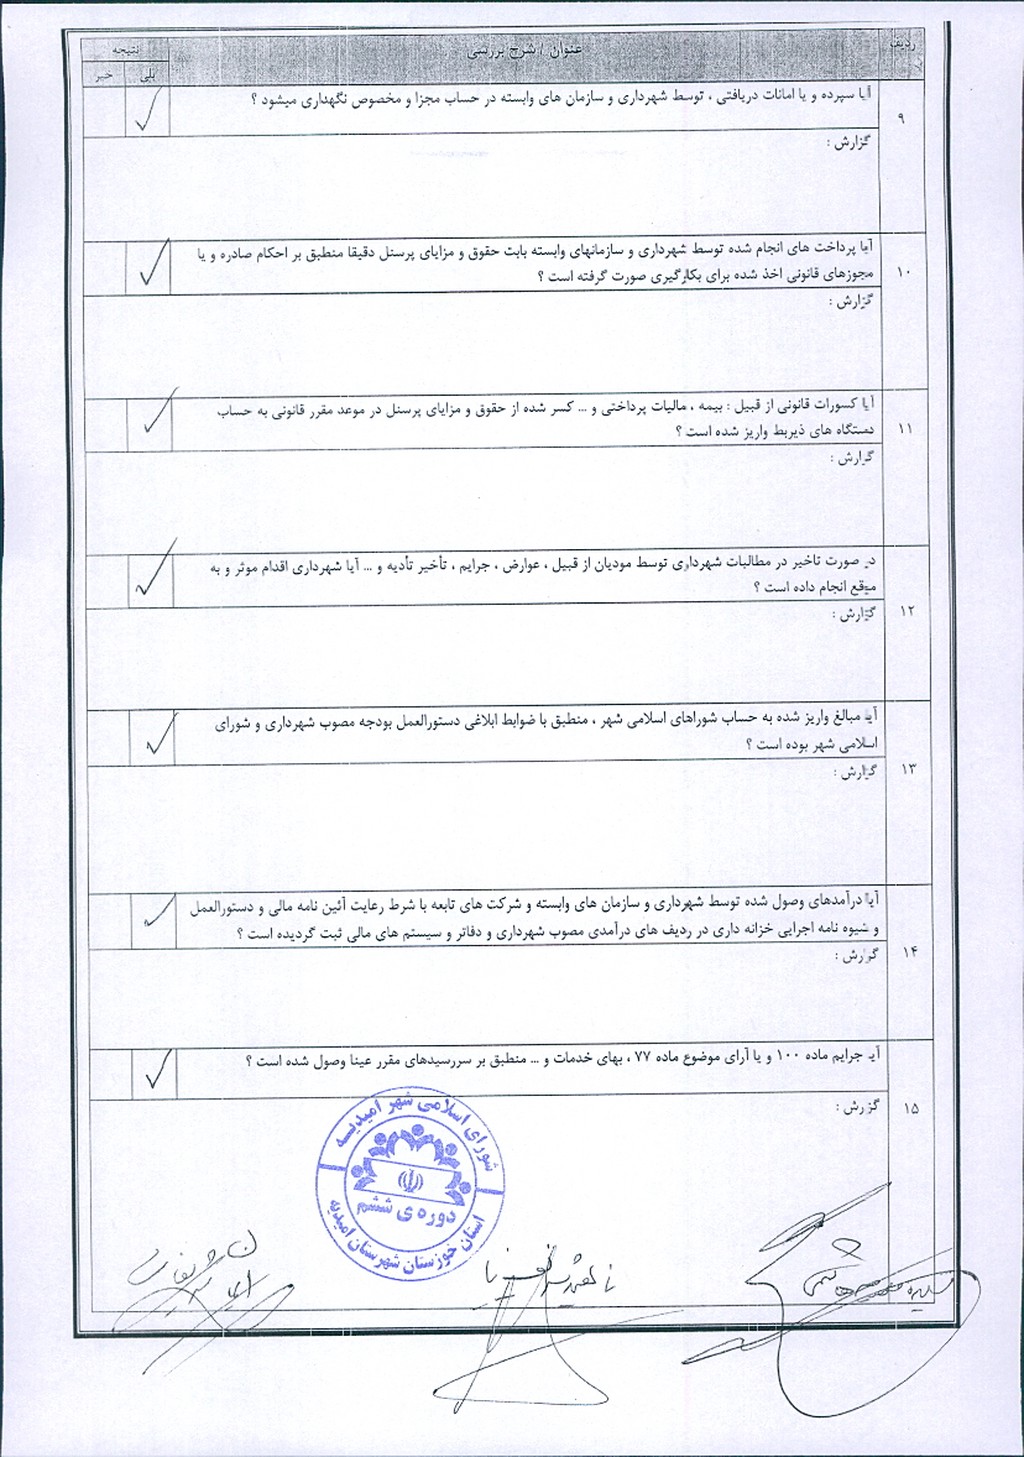 ردیف
عنوان / شرح بررسی
نتیجه
بلی
خیر
۹
آیا سپرده و یا امانات دریافتی ، توسط شهرداری و سازمان های وابسته در حساب مجزا و مخصوص نگهداری میشود ؟
گزارش :
۱۰
آیا پرداخت های انجام شده توسط شهرداری و سازمانهای وابسته بابت حقوق و مزایای پرسنل دقیقا منطبق بر احکام صادره و یا
مجوزهای قانونی اخذ شده برای بکارگیری صورت گرفته است ؟
گزارش :
۱۱
آیا کسورات قانونی از قبیل : بیمه ، مالیات پرداختی و ... کسر شده از حقوق و مزایای پرسنل در موعد مقرر قانونی به حساب
دستگاه های ذیربط واریز شده است ؟
گزارش :
۱۲
در صورت تاخیر در مطالبات شهرداری توسط مودیان از قبیل ، عوارض ، جرایم ، تأخیر تأدیه و ... آیا شهرداری اقدام موثر و به
موقع انجام داده است ؟
گزارش :
۱۳
آیا مبالغ واریز شده به حساب شوراهای اسلامی شهر ، منطبق با ضوابط ابلاغی دستورالعمل بودجه مصوب شهرداری و شورای
اسلامی شهر بوده است ؟
گزارش :
۱۴
آیا درآمدهای وصول شده توسط شهرداری و سازمان های وابسته و شرکت های تابعه با شرط رعایت آئین نامه مالی و دستورالعمل
و شیوه نامه اجرایی خزانه داری در ردیف های درآمدی مصوب شهرداری و دفاتر و سیستم های مالی ثبت گردیده است ؟
گزارش :
۱۵
آیا جرایم ماده ۱۰۰ و یا آرای موضوع ماده ۷۷ ، بهای خدمات و ... منطبق بر سررسیدهای مقرر عینا وصول شده است ؟
گزارش :
شورای اسلامی شهر امیدیه
دوره ی ششم
استان خوزستان شهرستان امیدیه